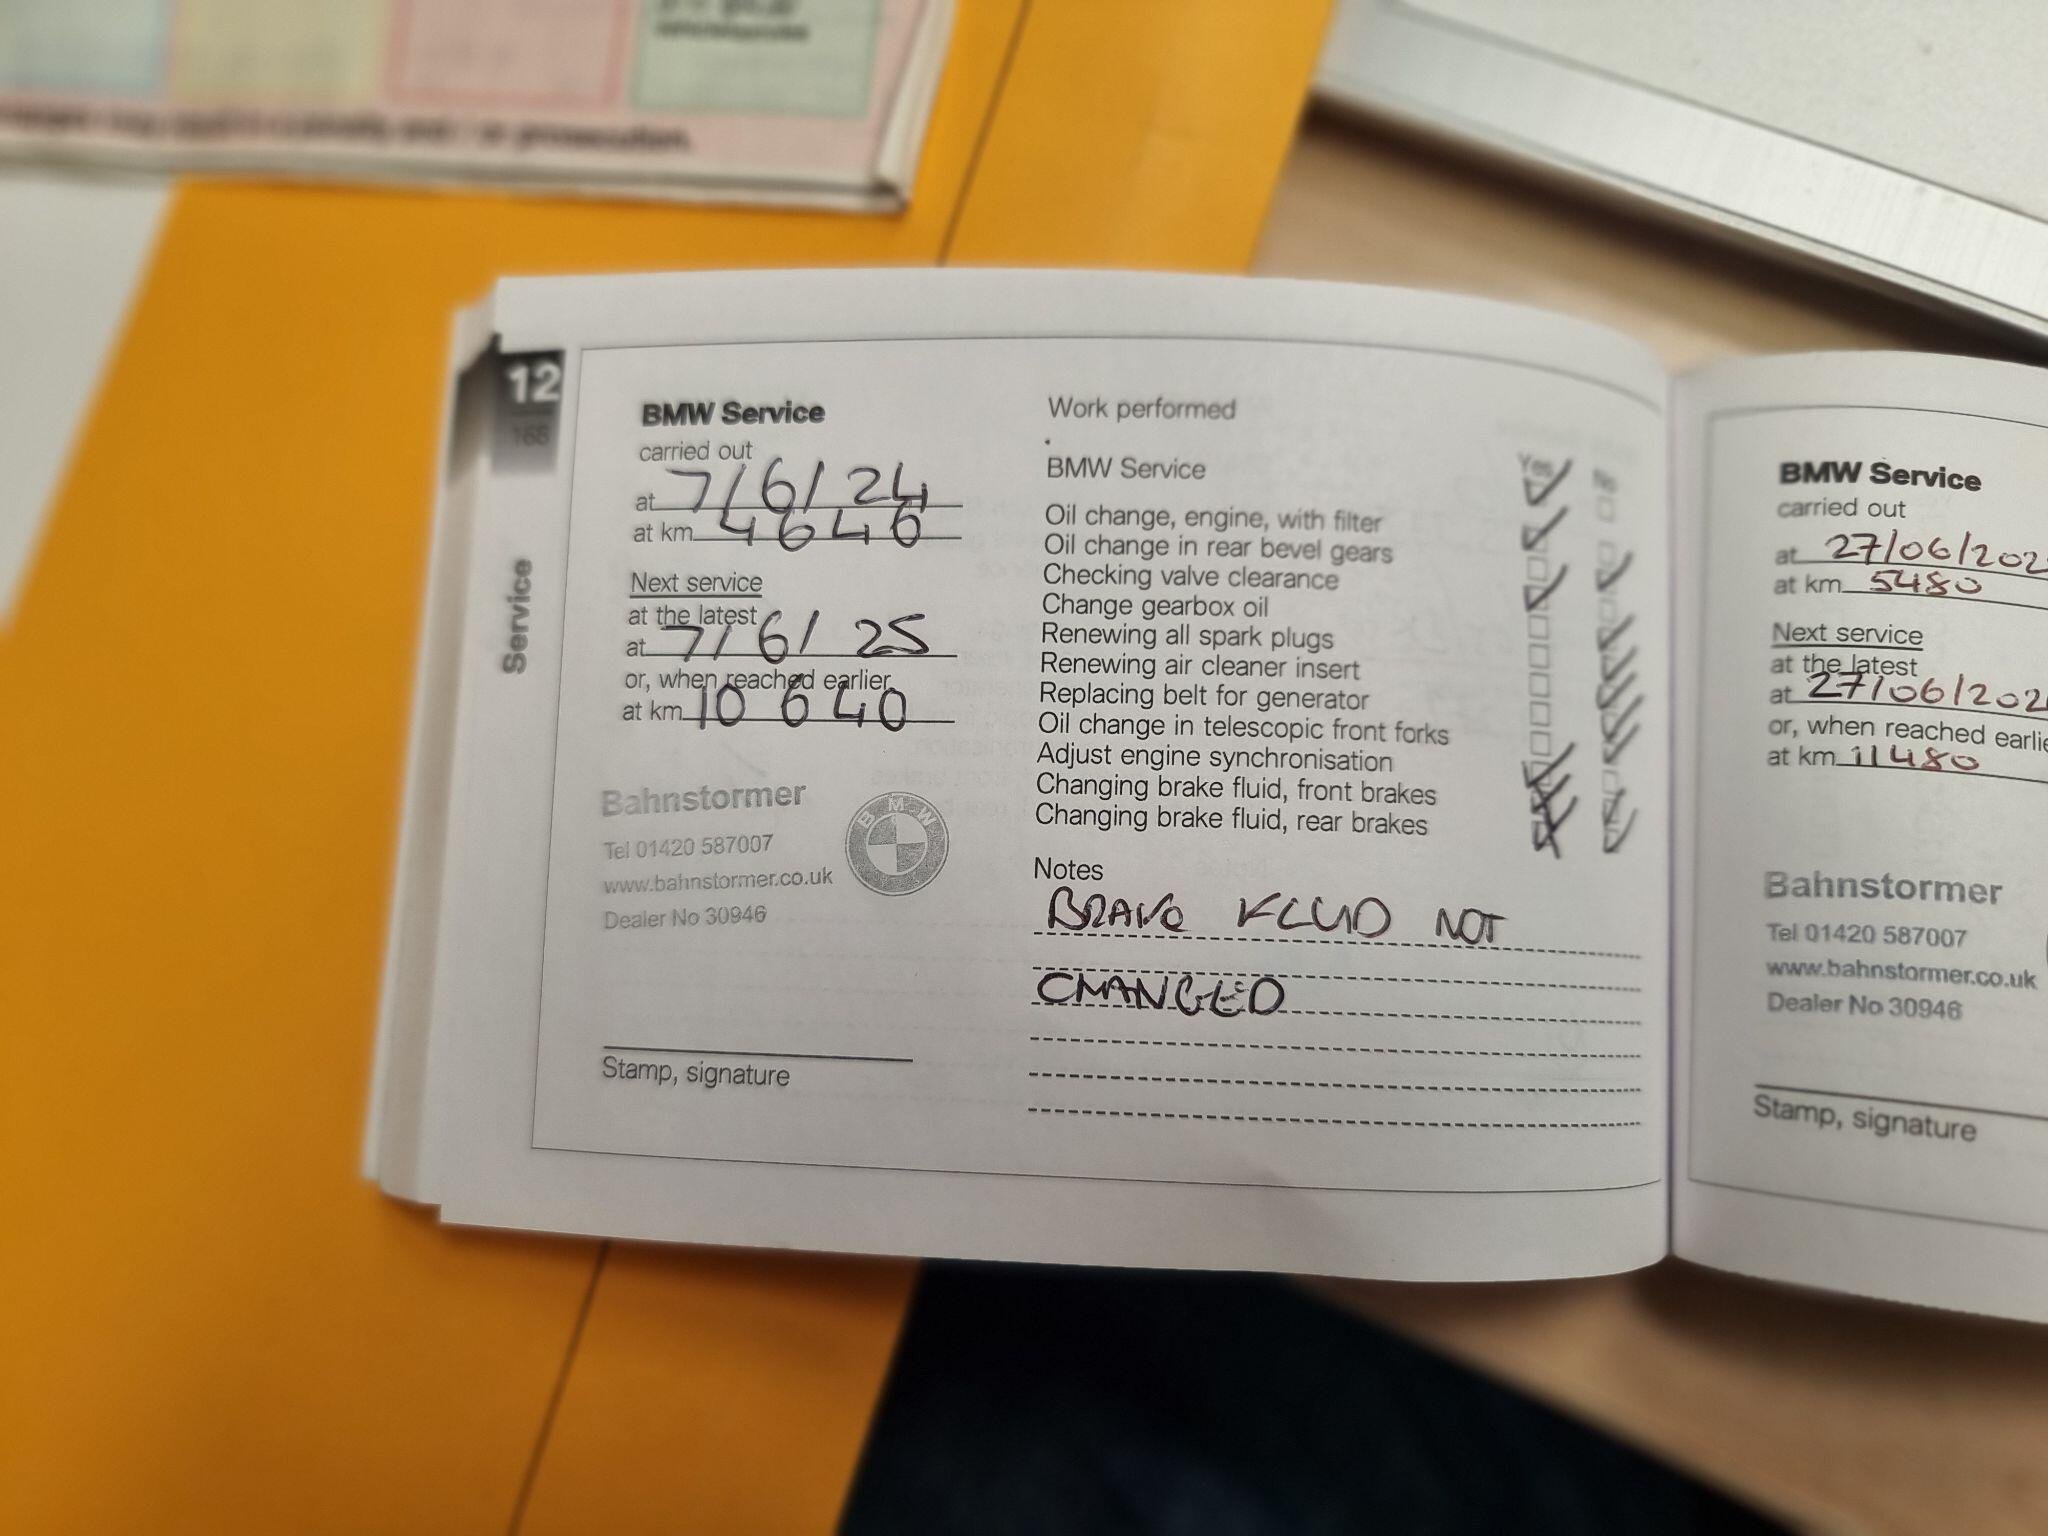 prosecution.
12
168
Service
BMW Service
carried out
at 7/6/24
at km 4646
Next service
at the latest
at 7/6/25
or, when reached earlier,
at km 10640
Bahnstormer
Tel 01420 587007
www.bahnstormer.co.uk
Dealer No 30946
BMW
Stamp, signature
Work performed
Yes
BMW Service
Oil change, engine, with filter
Oil change in rear bevel gears
Checking valve clearance
Change gearbox oil
Renewing all spark plugs
Renewing air cleaner insert
Replacing belt for generator
Oil change in telescopic front forks
Adjust engine synchronisation
Changing brake fluid, front brakes
Changing brake fluid, rear brakes
Notes
BRAKE FLUID NOT
CHANGED
BMW Service
carried out
at 27/06/202
at km 5480
Next service
at the latest
at 27/06/202
or, when reached earlie
at km 11480
Bahnstormer
Tel 01420 587007
www.bahnstormer.co.uk
Dealer No 30946
Stamp, signature